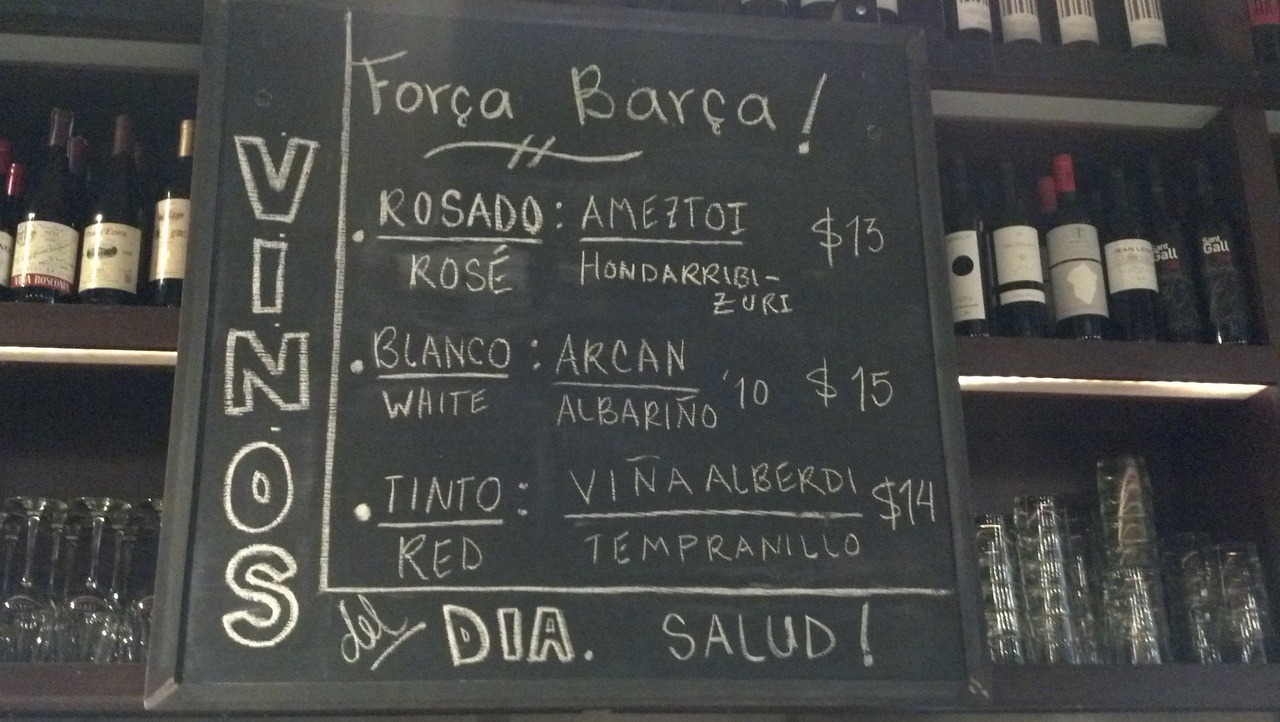 Força Barça!
VINOS
ROSADO: AMEZTOI $13
ROSÉ HONDARRIBI-
ZURI
BLANCO: ARCAN '10 $15
WHITE ALBARIÑO
TINTO: VIÑA ALBERDI $14
RED TEMPRANILLO
del DIA. SALUD!
Sant
Gall